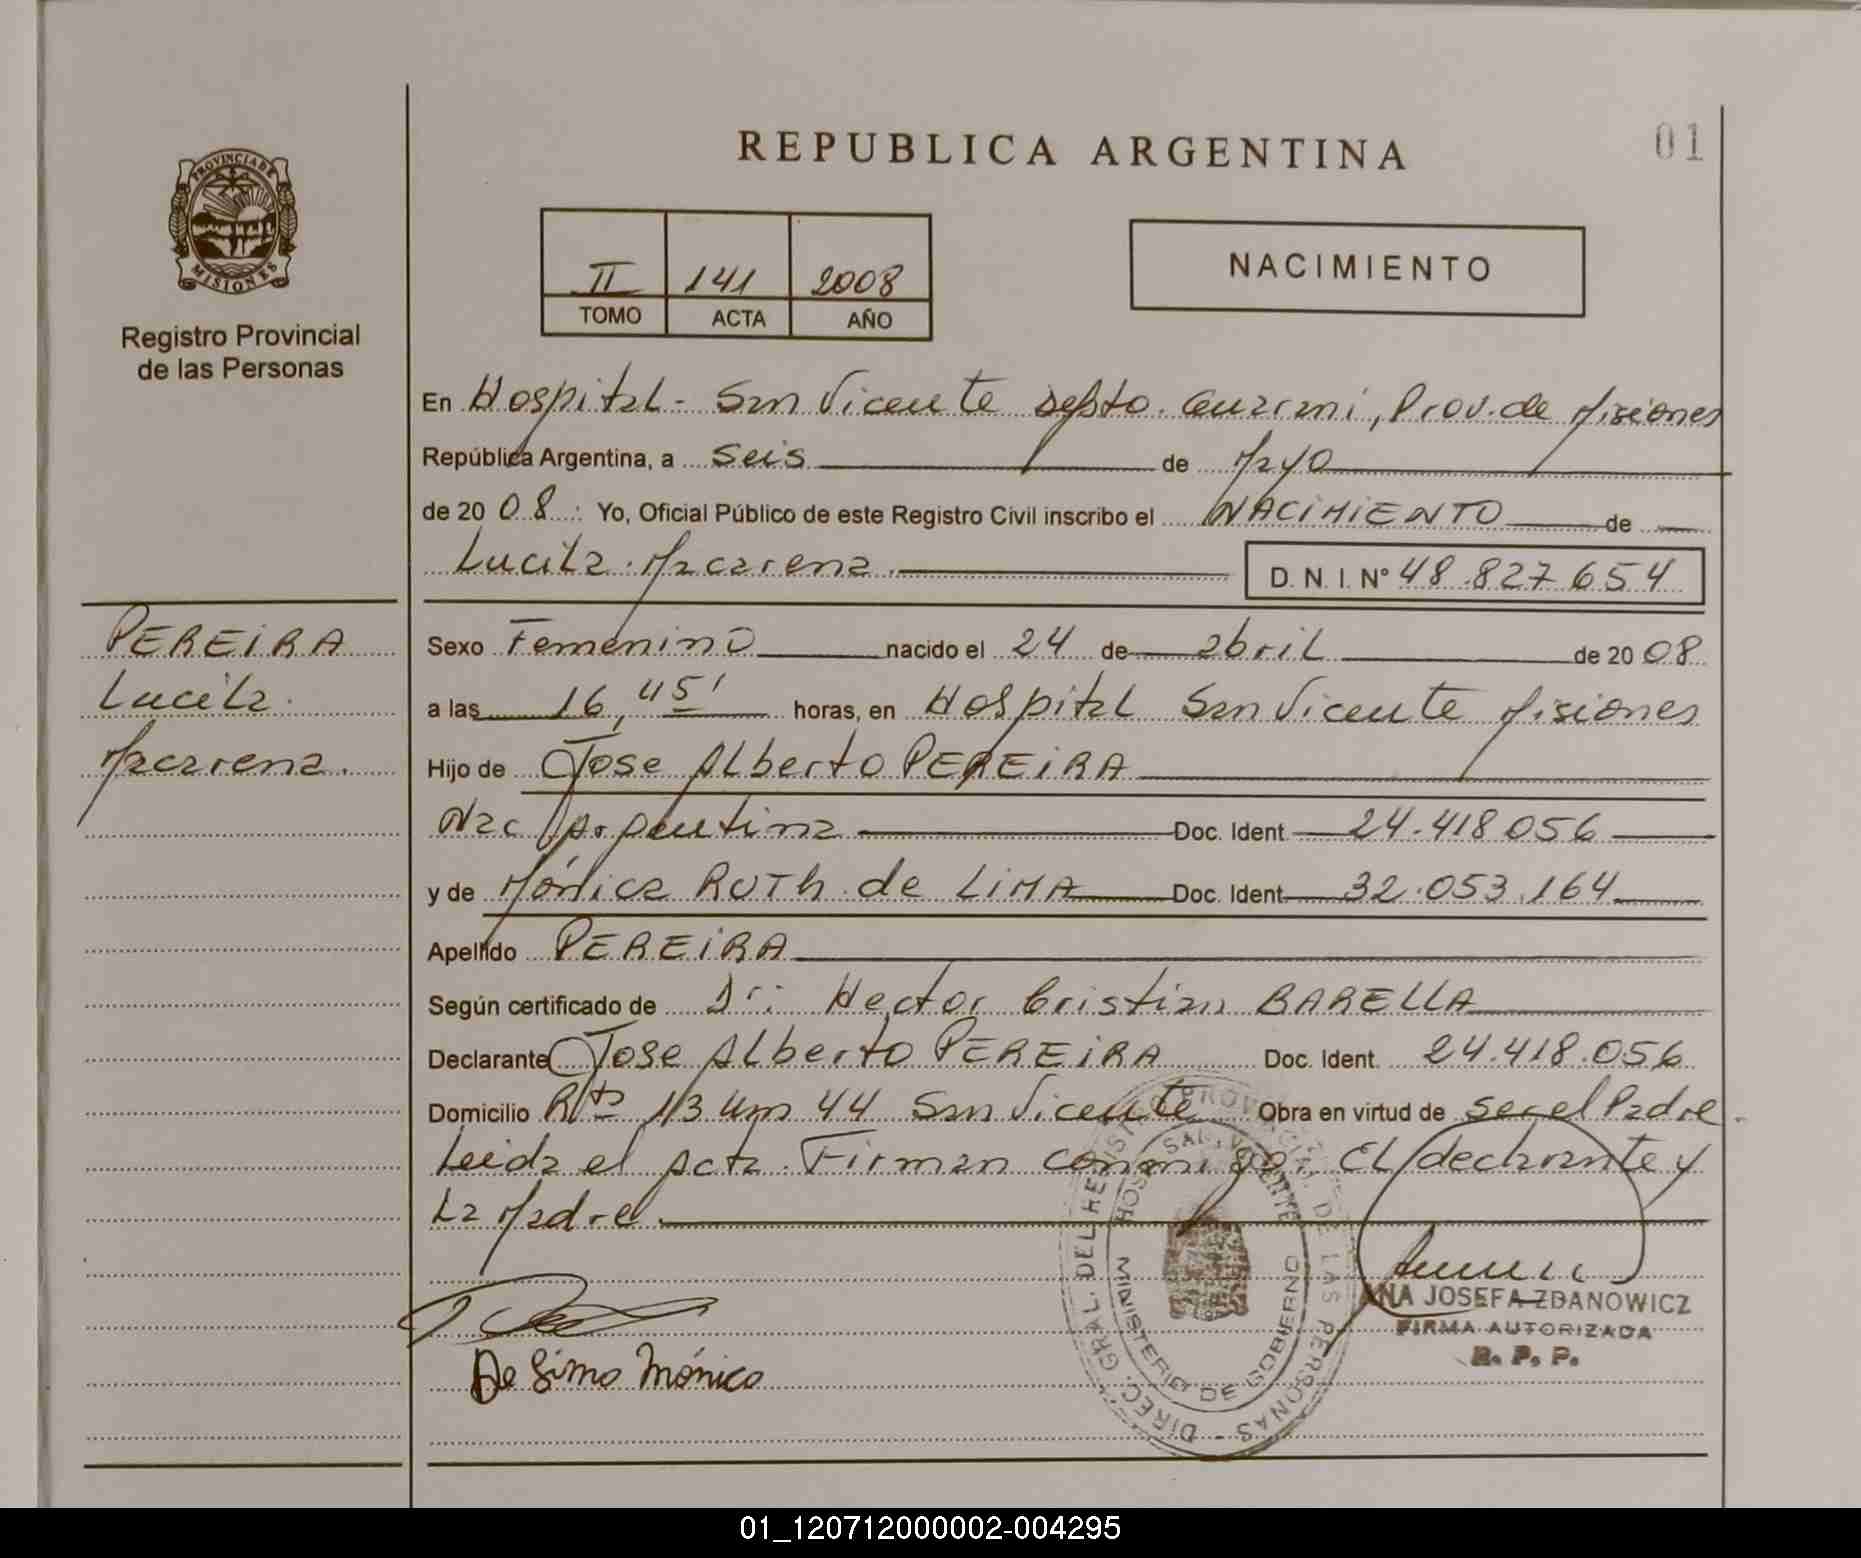 REPUBLICA ARGENTINA
01
PROVINCIA DE
MISIONES
Registro Provincial
de las Personas
II 141 2008
TOMO ACTA AÑO
NACIMIENTO
En Hospital - San Vicente Depto. Guarani, Prov. de Misiones
República Argentina, a seis de Mayo
de 2008 : Yo, Oficial Público de este Registro Civil inscribo el NACIMIENTO de
Lucila Macarena D. N. I. N° 48.827.654
PEREIRA
Lucila
Macarena.
Sexo Femenino nacido el 24 de abril de 2008
a las 16,45' horas, en Hospital San Vicente Misiones
Hijo de Jose Alberto PEREIRA
Nac Argentina Doc. Ident. 24.418.056
y de Mónica RUTh de LIMA Doc. Ident. 32.053.164
Apellido PEREIRA
Según certificado de Dr: Hector Cristian BARELLA
Declarante Jose Alberto PEREIRA Doc. Ident. 24.418.056
Domicilio Rta 13 Km 44 San Vicente Obra en virtud de ser el Padre
Leida el acta. Firman conmigo: El declarante y
La Madre.
DIREC. GRAL. DEL REGISTRO PROVINCIAL DE LAS PERSONAS -
HOSP. SAN VICENTE
MINISTERIO DE GOBIERNO
ANA JOSEFA ZDANOWICZ
FIRMA AUTORIZADA
R. P. P.
De Lima Mónica
01_120712000002-004295